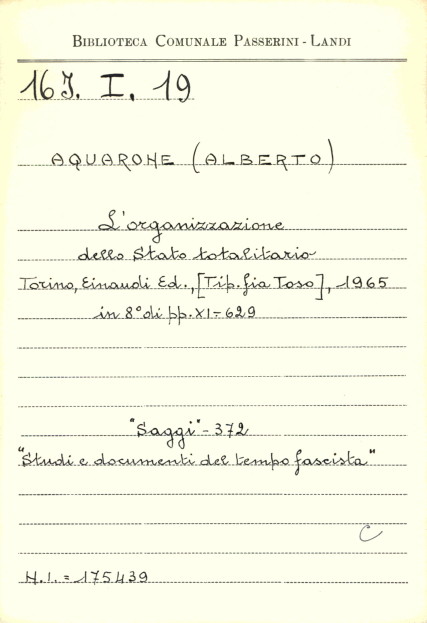 BIBLIOTECA COMUNALE PASSERINI - LANDI
16J. I. 19
AQUARONE (ALBERTO)
L'organizzazione
dello Stato totalitario
Torino, Einaudi Ed., [Tip. fia Toso], 1965
in 8° di pp. XI-629
"Saggi" - 372
"Studi e documenti del tempo fascista"
C
N.I. = 175439